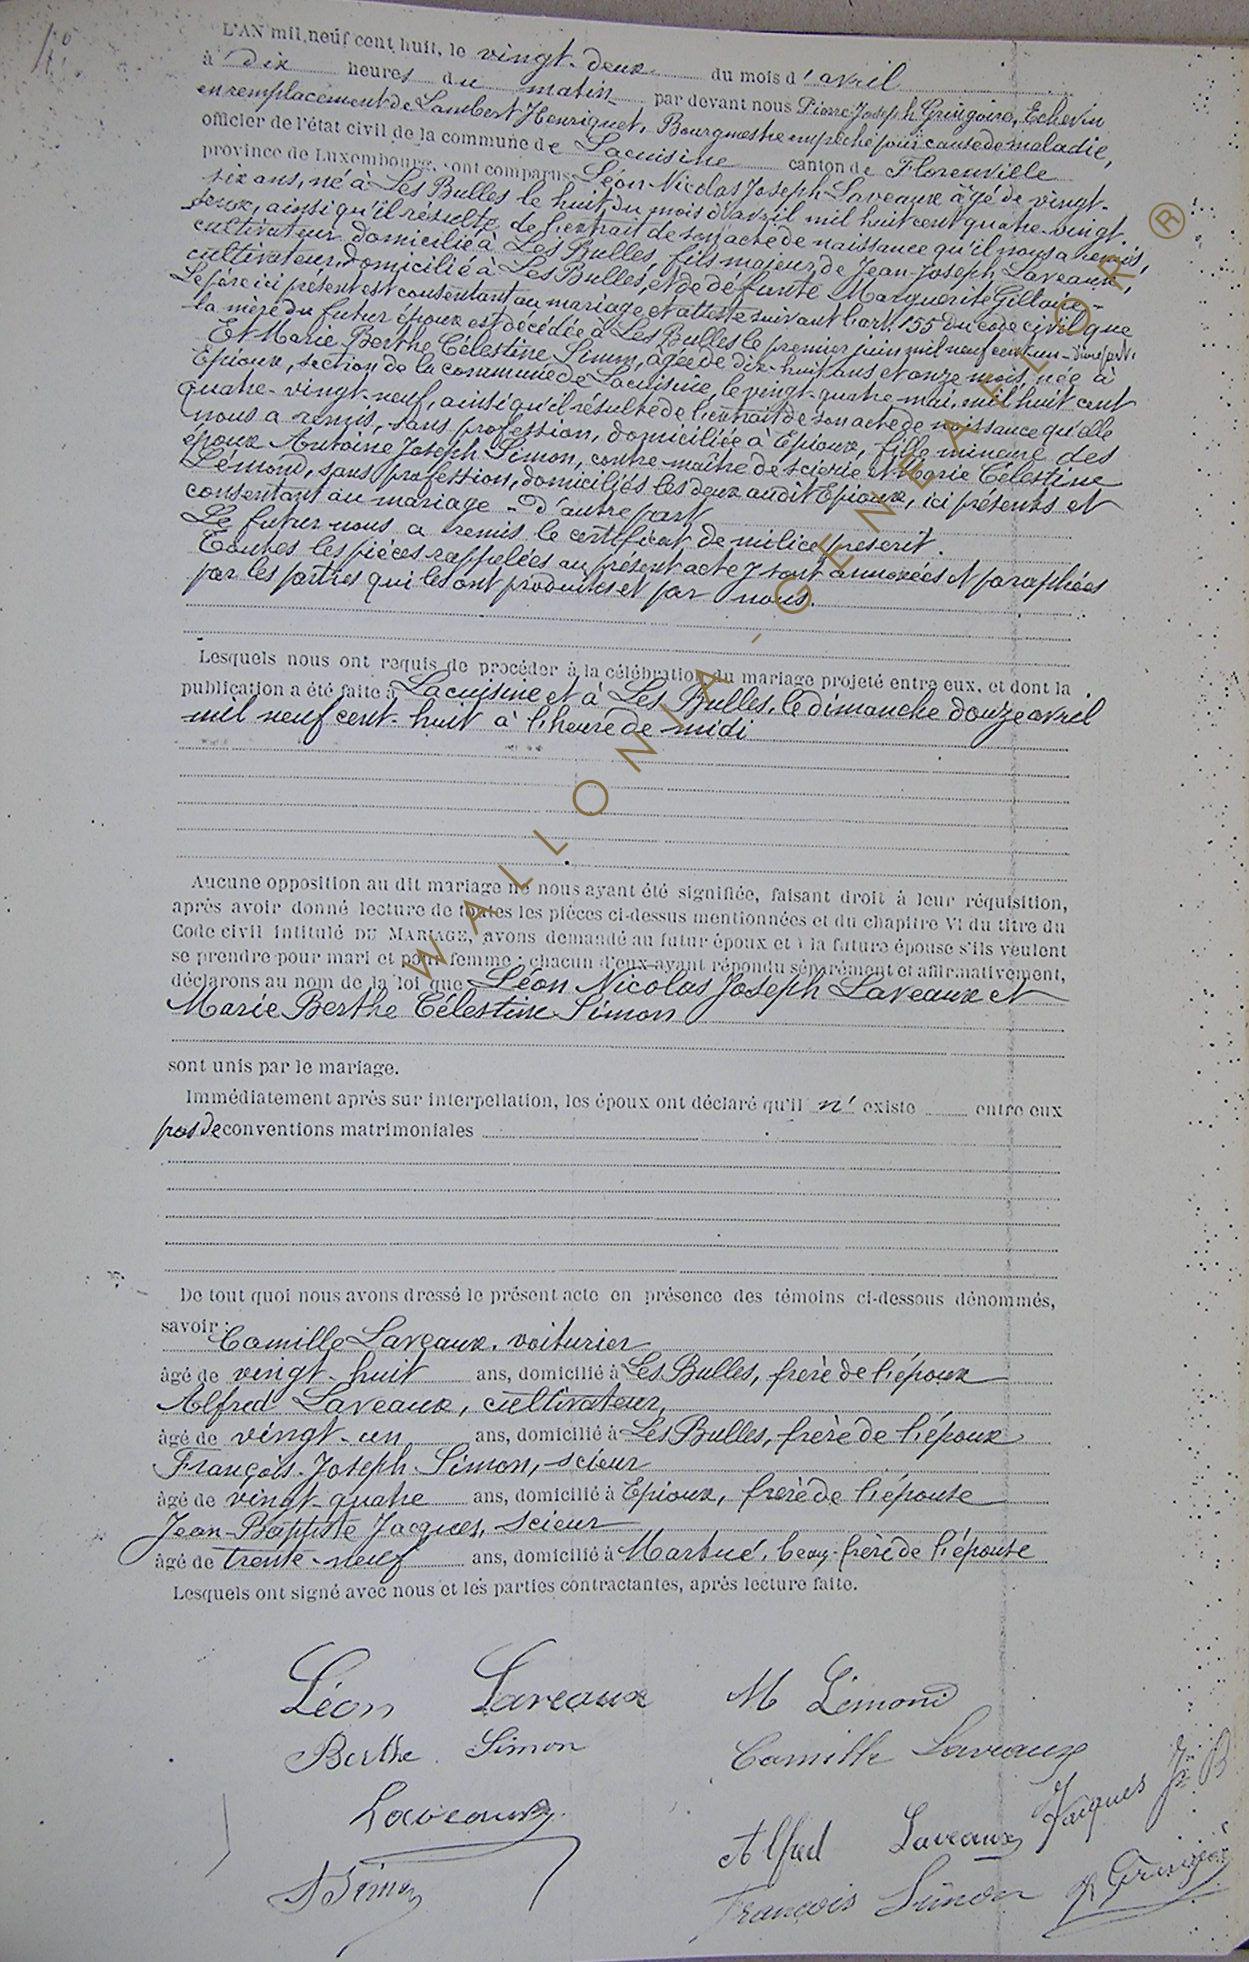 L'AN mil neuf cent huit, le vingt-deux du mois d'avril
à dix heures du matin, par devant nous Pierre Joseph Gringoire, Echevin
en remplacement de Lambert Henriquet, Bourgmestre empêché pour cause de maladie,
officier de l'état civil de la commune de Lacuisine canton de Florenville
province de Luxembourg, ont comparus Léon Nicolas Joseph Laveaux âgé de vingt-
six ans, né à Les Bulles le huit du mois d'avril mil huit cent quatre-vingt-
deux, ainsi qu'il résulte de l'extrait de son acte de naissance qu'il nous a remis,
cultivateur domicilié à Les Bulles, fils majeur de Jean-Joseph Laveaux,
cultivateur, domicilié à Les Bulles, et de défunte Marguerite Gillaux-
Le père ici présent est consentant au mariage et atteste suivant l'art. 155 du code civil que
la mère du futur époux est décédée à Les Bulles le premier juin mil neuf cent un - d'une part.
Et Marie Berthe Célestine Simon, âgée de dix-huit ans et onze mois, née à
Epioux, section de la commune de Lacuisine, le vingt-quatre mai mil huit cent
quatre-vingt-neuf, ainsi qu'il résulte de l'extrait de son acte de naissance qu'elle
nous a remis, sans profession, domiciliée à Epioux, fille mineure des
époux Antoine Joseph Simon, contre-maître de scierie et Marie Célestine
Lémond, sans profession, domiciliés les deux audit Epioux, ici présents et
consentant au mariage - D'autre part
Le futur nous a remis le certificat de milice prescrit.
Toutes les pièces rappelées au présent acte y sont annexées et paraphées
par les parties qui les ont produites et par nous.
Lesquels nous ont requis de procéder à la célébration du mariage projeté entre eux, et dont la
publication a été faite à Lacuisine et à Les Bulles, le dimanche douze avril
mil neuf cent-huit à l'heure de midi
Aucune opposition au dit mariage ne nous ayant été signifiée, faisant droit à leur réquisition,
après avoir donné lecture de toutes les pièces ci-dessus mentionnées et du chapitre VI du titre du
Code civil intitulé DU MARIAGE, avons demandé au futur époux et à la future épouse s'ils veulent
se prendre pour mari et pour femme ; chacun d'eux ayant répondu séparément et affirmativement,
déclarons au nom de la loi que Léon Nicolas Joseph Laveaux et
Marie Berthe Célestine Simon
sont unis par le mariage.
Immédiatement après sur interpellation, les époux ont déclaré qu'il n' existe entre eux
pas de conventions matrimoniales
De tout quoi nous avons dressé le présent acte en présence des témoins ci-dessous dénommés,
savoir : Camille Laveaux, voiturier
âgé de vingt-huit ans, domicilié à Les Bulles, frère de l'époux
Alfred Laveaux, cultivateur,
âgé de vingt-un ans, domicilié à Les Bulles, frère de l'époux
François-Joseph Simon, scieur
âgé de vingt-quatre ans, domicilié à Epioux, frère de l'épouse
Jean-Baptiste Jacques, scieur
âgé de trente-neuf ans, domicilié à Martué, beau-frère de l'épouse
Lesquels ont signé avec nous et les parties contractantes, après lecture faite.
Léon Laveaux M Lémond
Berthe Simon Camille Laveaux
Laveaux Jacques J B
Alfred Laveaux
A Simon François Simon Gringoire
WALLONIA-GENEAFLOR ®